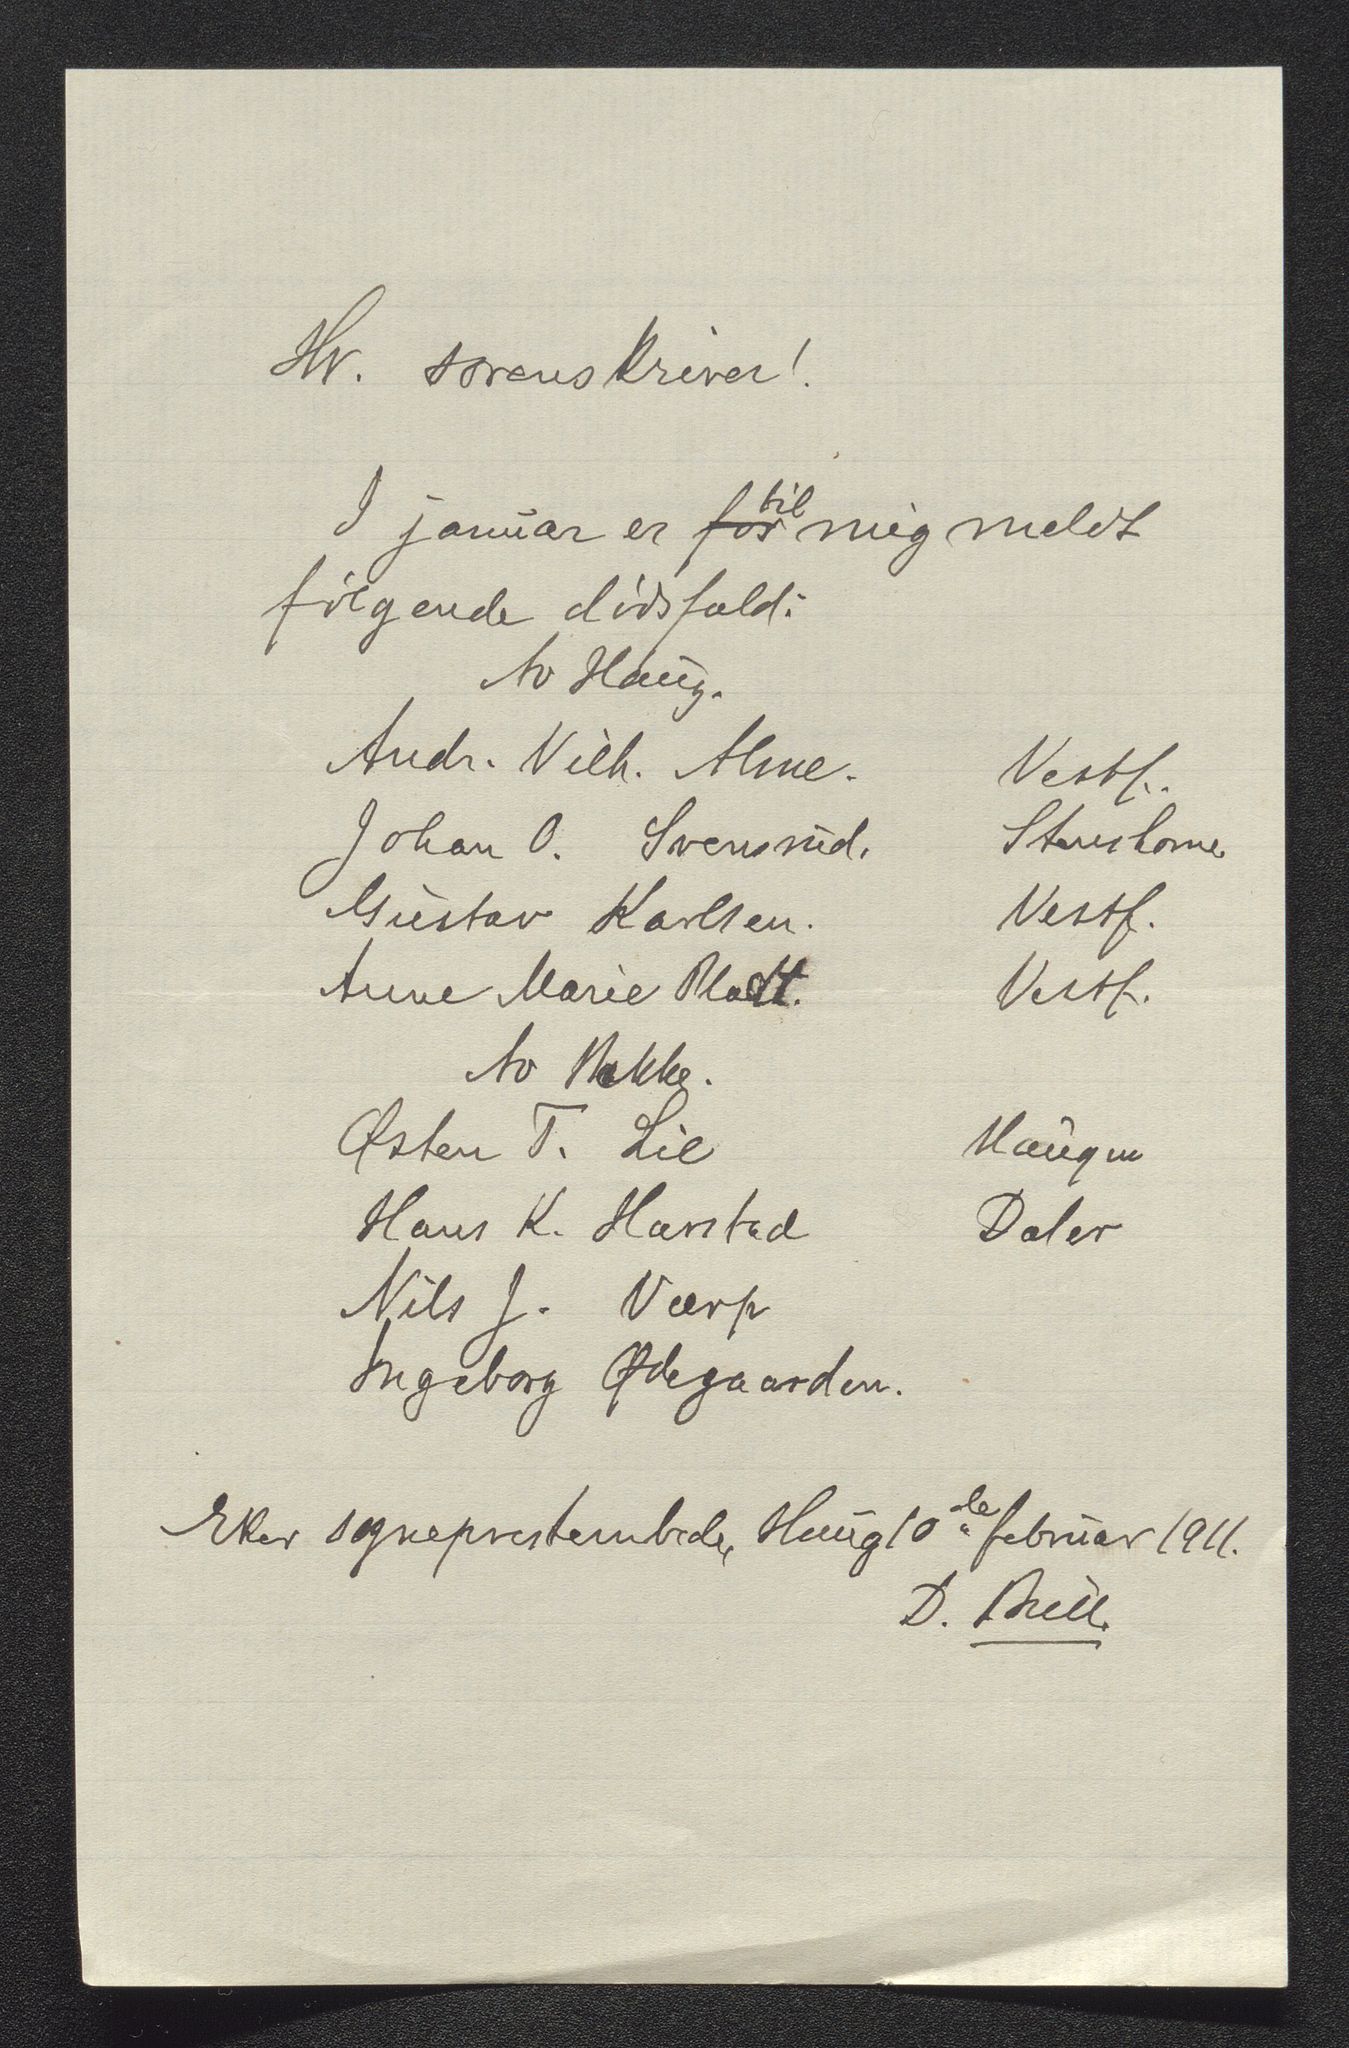 Hr. sorenskriver!
I januar er for til mig meldt
følgende dødsfald:
Av Haug.
Andr. Vilh. Alme. Vestf.
Johan O. Svensrud.
Gustav Karlsen. Vestf.
Anne Marie Vestf.
Av Bakke.
Østen T. Lie Haugen
Hans K. Harstad Daler
Nils J. Værp
Ingeborg Ødegaarden.
Eker sogneprestembede, Haug 10de februar 1911.
D.